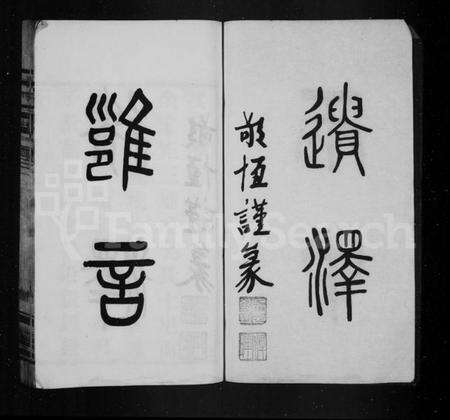 遺澤
敬恆謹篆
雝言
FamilySearch